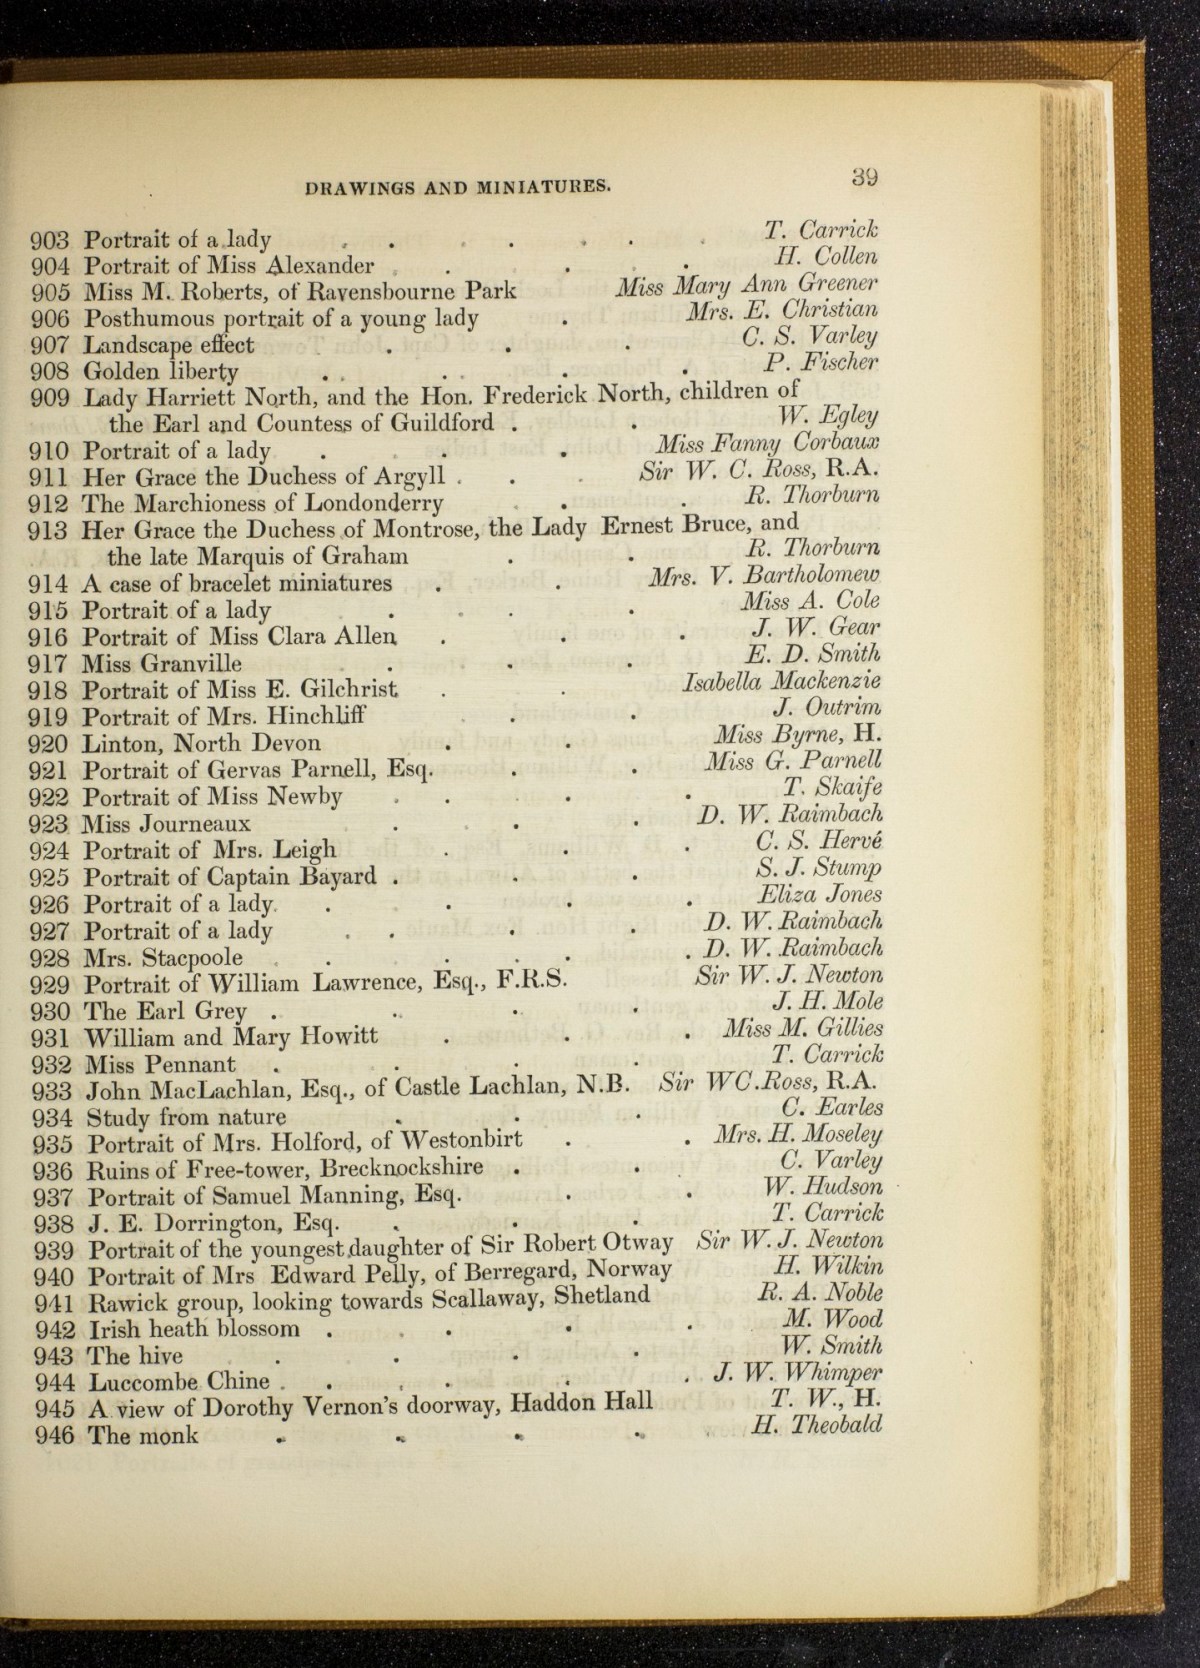 DRAWINGS AND MINIATURES. 39
903 Portrait of a lady . . . . . . . T. Carrick
904 Portrait of Miss Alexander . . . . H. Collen
905 Miss M. Roberts, of Ravensbourne Park Miss Mary Ann Greener
906 Posthumous portrait of a young lady . Mrs. E. Christian
907 Landscape effect . . . C. S. Varley
908 Golden liberty . . . . . . P. Fischer
909 Lady Harriett North, and the Hon. Frederick North, children of
the Earl and Countess of Guildford . . W. Egley
910 Portrait of a lady . . . Miss Fanny Corbaux
911 Her Grace the Duchess of Argyll . . . Sir W. C. Ross, R.A.
912 The Marchioness of Londonderry . . R. Thorburn
913 Her Grace the Duchess of Montrose, the Lady Ernest Bruce, and
the late Marquis of Graham . . R. Thorburn
914 A case of bracelet miniatures . . Mrs. V. Bartholomew
915 Portrait of a lady . . . . Miss A. Cole
916 Portrait of Miss Clara Allen . . . J. W. Gear
917 Miss Granville . . . E. D. Smith
918 Portrait of Miss E. Gilchrist . . Isabella Mackenzie
919 Portrait of Mrs. Hinchliff . . J. Outrim
920 Linton, North Devon . . Miss Byrne, H.
921 Portrait of Gervas Parnell, Esq. . . Miss G. Parnell
922 Portrait of Miss Newby . . . . T. Skaife
923 Miss Journeaux . . . D. W. Raimbach
924 Portrait of Mrs. Leigh . . . C. S. Hervé
925 Portrait of Captain Bayard . . . S. J. Stump
926 Portrait of a lady. . . . . Eliza Jones
927 Portrait of a lady . . . . D. W. Raimbach
928 Mrs. Stacpoole . . . . . D. W. Raimbach
929 Portrait of William Lawrence, Esq., F.R.S. Sir W. J. Newton
930 The Earl Grey . . . . J. H. Mole
931 William and Mary Howitt . . . Miss M. Gillies
932 Miss Pennant . . . . T. Carrick
933 John MacLachlan, Esq., of Castle Lachlan, N.B. Sir WC.Ross, R.A.
934 Study from nature . . . C. Earles
935 Portrait of Mrs. Holford, of Westonbirt . . Mrs. H. Moseley
936 Ruins of Free-tower, Brecknockshire . . C. Varley
937 Portrait of Samuel Manning, Esq. . . W. Hudson
938 J. E. Dorrington, Esq. . . . T. Carrick
939 Portrait of the youngest daughter of Sir Robert Otway Sir W. J. Newton
940 Portrait of Mrs Edward Pelly, of Berregard, Norway H. Wilkin
941 Rawick group, looking towards Scallaway, Shetland R. A. Noble
942 Irish heath blossom . . . . M. Wood
943 The hive . . . . W. Smith
944 Luccombe Chine . . . . . J. W. Whimper
945 A view of Dorothy Vernon's doorway, Haddon Hall T. W., H.
946 The monk . . . . H. Theobald